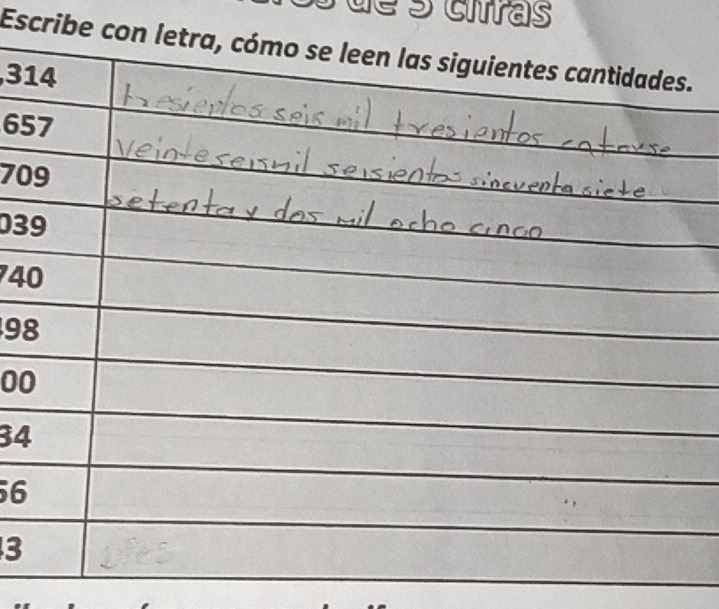 de 5 cifras
Escribe con letra, cómo se leen las siguientes cantidades.
,314 tresientos seis mil tresientos catorse
657 veinte seis mil seisientos sincuenta siete
709 setenta y dos mil ocho cinco
039
740
498
00
34
56
13